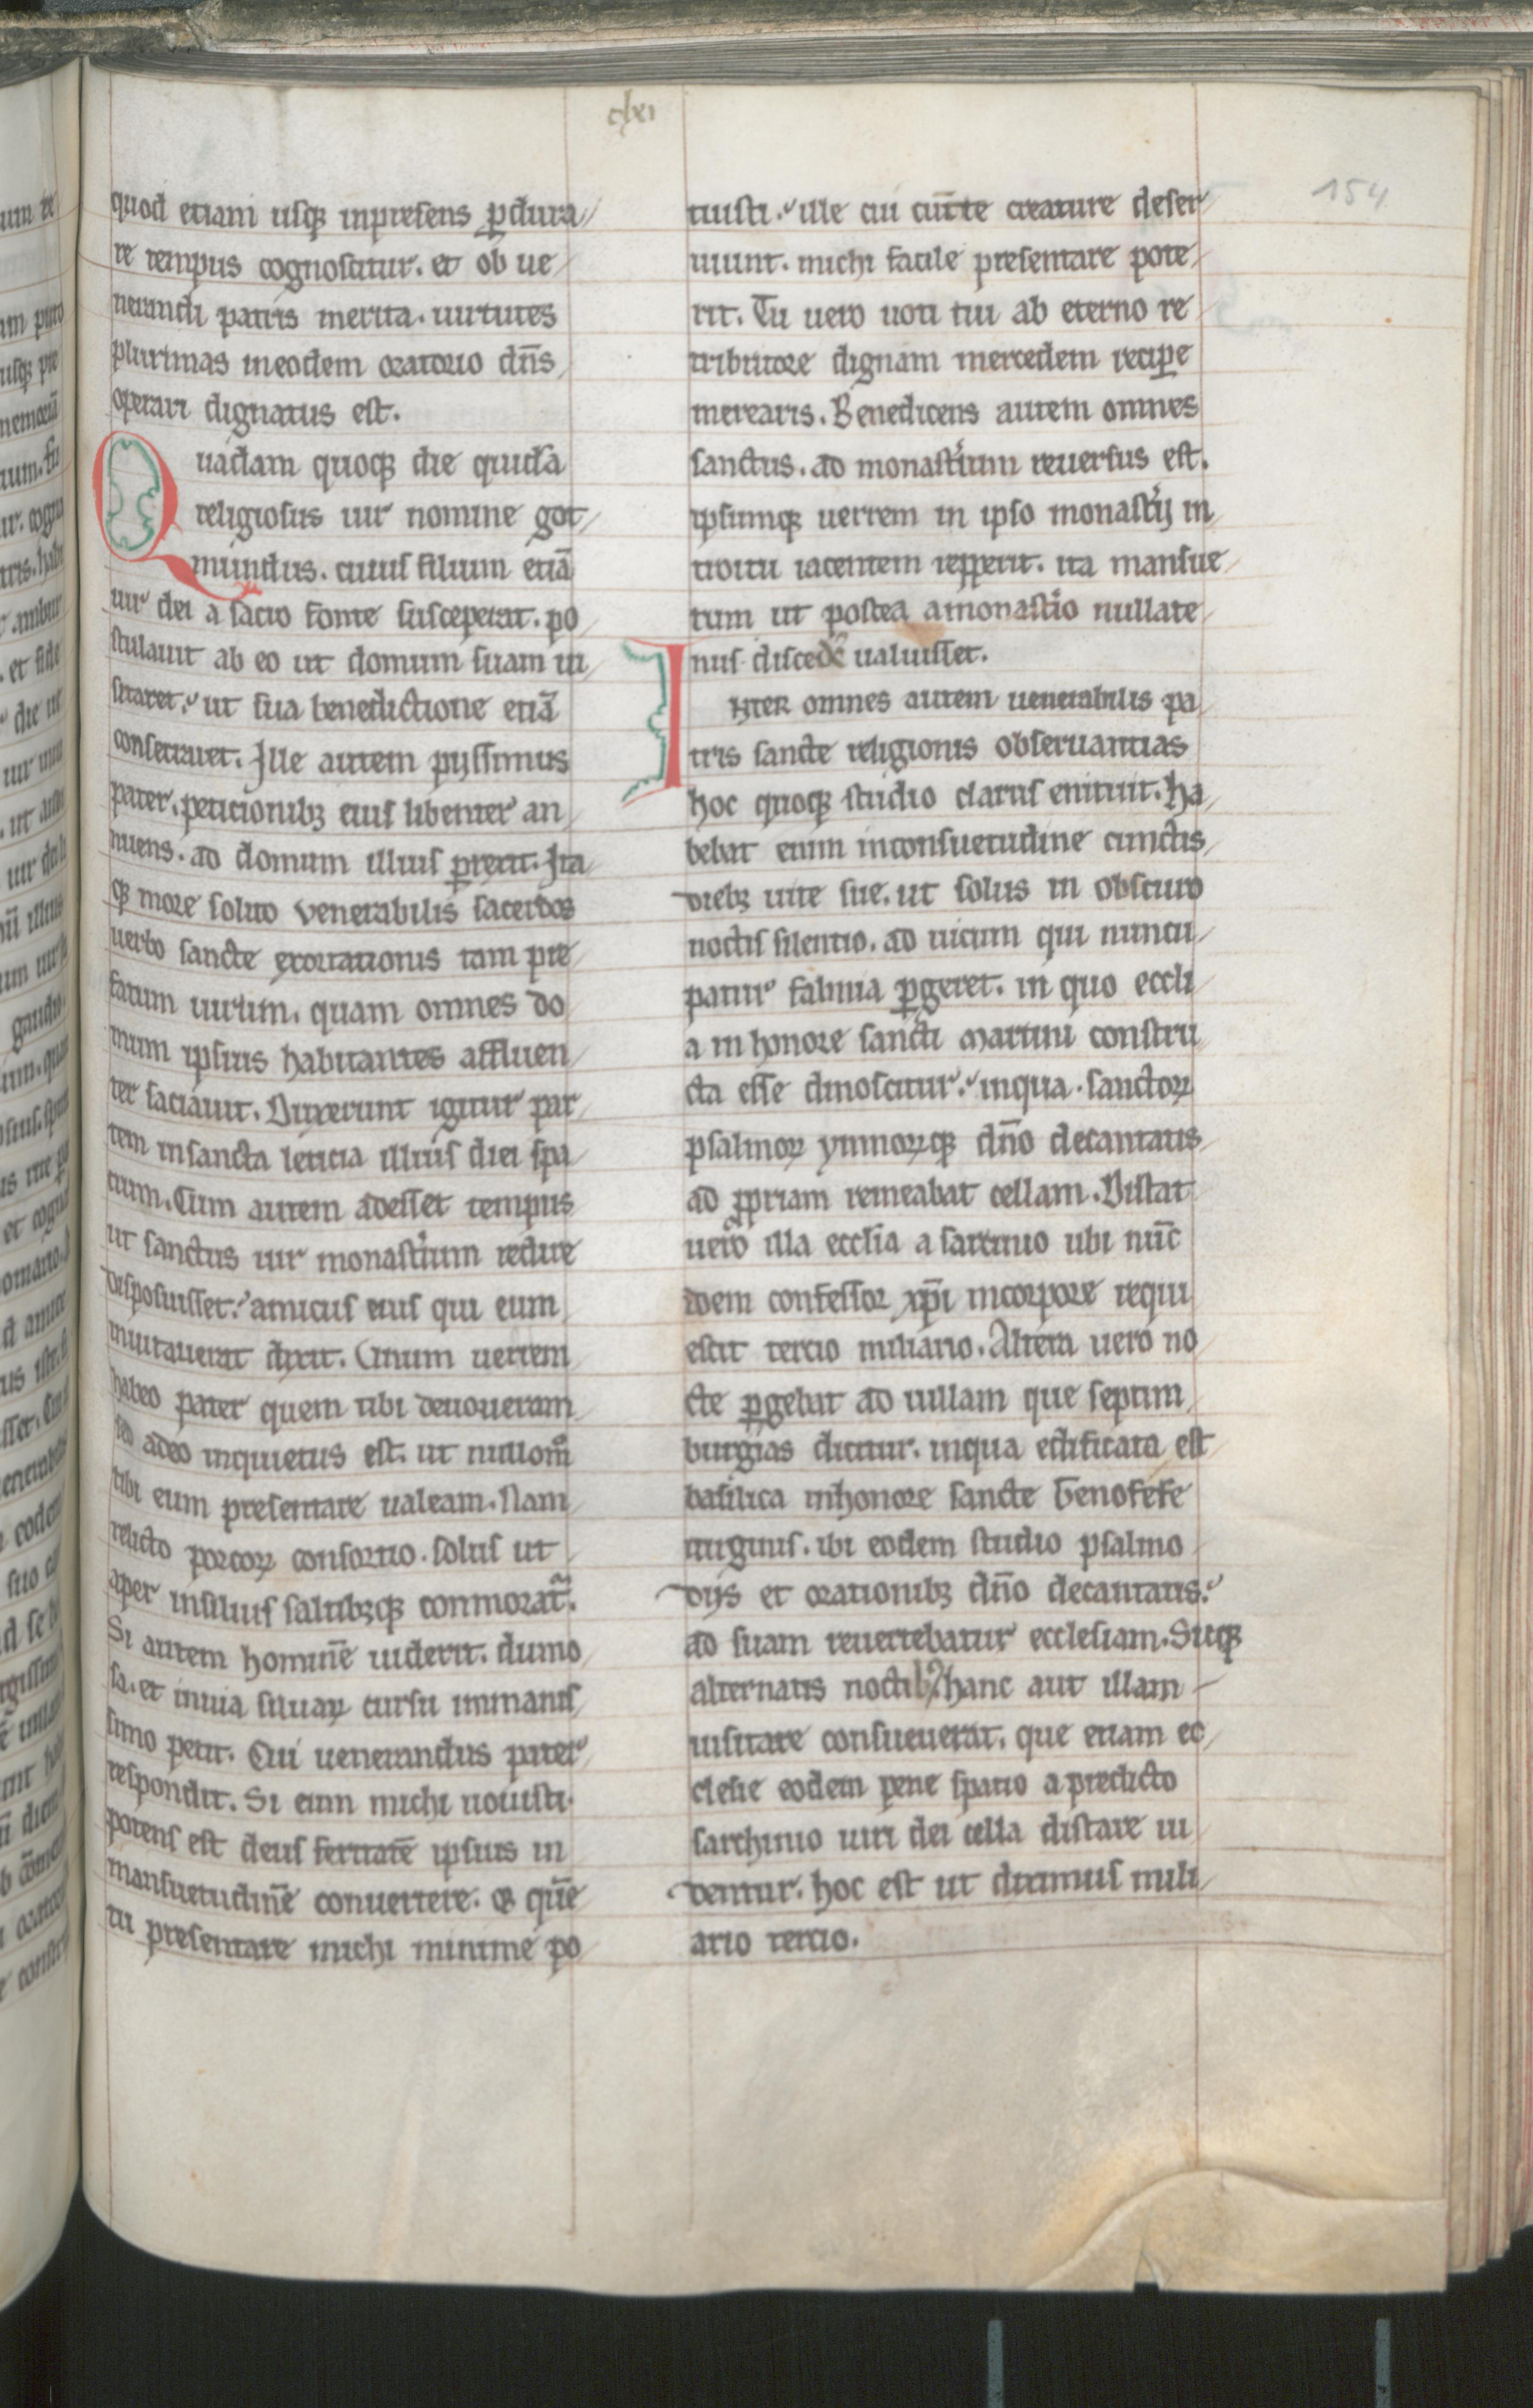 clxi
154
quod etiam usq; inpresens ꝑdura
re tempus cognoscitur. et ob ue
nerandi patris merita. uirtutes
plurimas ineodem oratorio dn̄s
operari dignatus est.
Quadam quoq; die quidā
religiosus uir nomine got
mundus. cuius filium etiā
uir dei a sacro fonte susceperat. po
stulauit ab eo ut domum suam ui
sitaret. ut sua benedictione etiā
consecraret. Ille autem pyssimus
pater. peticionib; eius libenter an
nuens. ad domum illius ꝑrexit. Ita
q; more solito venerabilis sacerdos
uerbo sancte exortationis tam pre
fatum uirum. quam omnes do
mum ipsius habitantes affluen
ter saciauit. Duxerunt igitur par
tem insancta leticia illius diei spa
cium. Cum autem adesset tempus
ut sanctus uir monast'ium redire
disposuisset. amicus eius qui eum
inuitauerat dixit. Unum uerrem
habeo pater quem tibi deuoueram
sed adeo inquietus est. ut nullom̊
tibi eum presentare ualeam. Nam
relicto porcoꝝ consortio. solus ut
aper insiluis saltib;q; conmorat᷑.
Si autem hominē uiderit. dumo
sa. et inuia siluaꝝ cursu inmanis
simo petit. Cui uenerandus pater
respondit. Si eum michi uouisti.
potens est deus feritatē ipsius in
mansuetudinē conuertere. Et quē
tu presentare michi minime po
tuisti. ille cui cūcte creature deser
uiunt. michi facile presentare pote
rit. Tu uero uoti tui ab eterno re
tributore dignam mercedem reciꝑe
merearis. Benedicens autem omnes
sanctus. ad monast'ium reuersus est.
ipsumq; uerrem in ipso monast'ij in
troitu iacentem repperit. ita mansue
tum ut postea amonast'io nullate
nus discedē ualuisset.
INTER omnes autem uenerabilis pa
tris sancte religionis obseruantias
hoc quoq; studio clarus enituit. ha
bebat enim inconsuetudine cunctis
dieb; uite sue. ut solus in obscuro
noctis silentio. ad uicum qui nuncu
patur fabinia ꝑgeret. in quo eccli
a in honore sancti martini constru
cta esse dinoscitur. inqua. sanctoꝝ
psalmoꝝ ymnoꝝq; dn̄o decantatis
ad ꝓpriam remeabat cellam. Distat
uero illa ecclīa a sarcinio ubi nūc
idem confessor xp̄i incorpore requi
escit tercio miliario. Altera uero no
cte ꝑgebat ad uillam que septim
burgias dicitur. inqua edificata est
basilica inhonore sancte Genofefe
uirginis. ibi eodem studio psalmo
dijs et orationib; dn̄o decantatis.
ad suam reuertebatur ecclesiam. Sicq;
alternatis noctib; hanc aut illam
uisitare consueuerat. que etiam ec
clesie eodem pene spatio a predicto
sarchinio uiri dei cella distare ui
dentur. hoc est ut diximus mili
ario tercio.